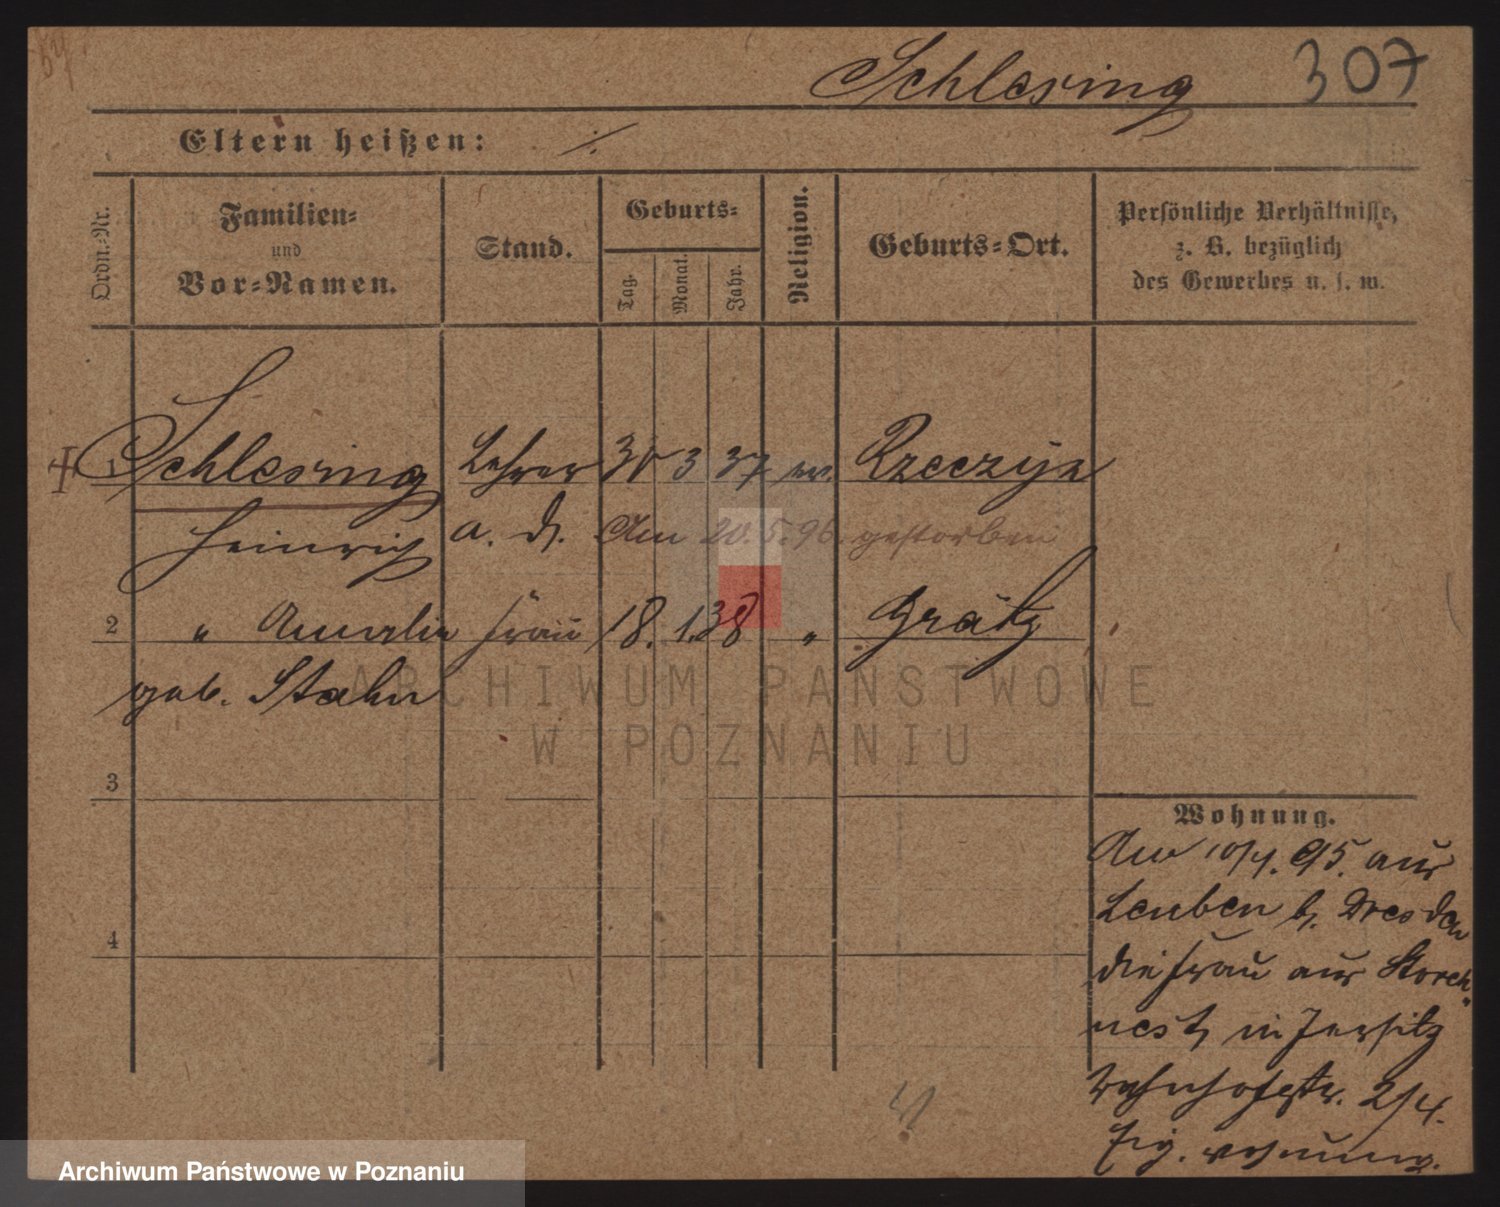 Schlesing 307
Eltern heißen: ./.
Ordn.-Nr.
Familien-
und
Vor-Namen.
Stand.
Geburts-
Tag.
Monat.
Jahr.
Religion.
Geburts-Ort.
Persönliche Verhältnisse,
z. B. bezüglich
des Gewerbes u. s. w.
1 Schlesing Lehrer 30 3 37 ev.
Heinrich a. D. Am 20.5.96. gestorben
2 " Amalie Frau 18. 1. 38 " Grätz
geb. Stahn
3
4
Wohnung.
Am 10/4. 95. aus
Leuben b. Dresden
die Frau aus Storch-
nest, in Jersitz
Bahnhofstr. 2/4.
Eig. Wohnung.
ARCHIWUM PAŃSTWOWE
W POZNANIU
Archiwum Państwowe w Poznaniu